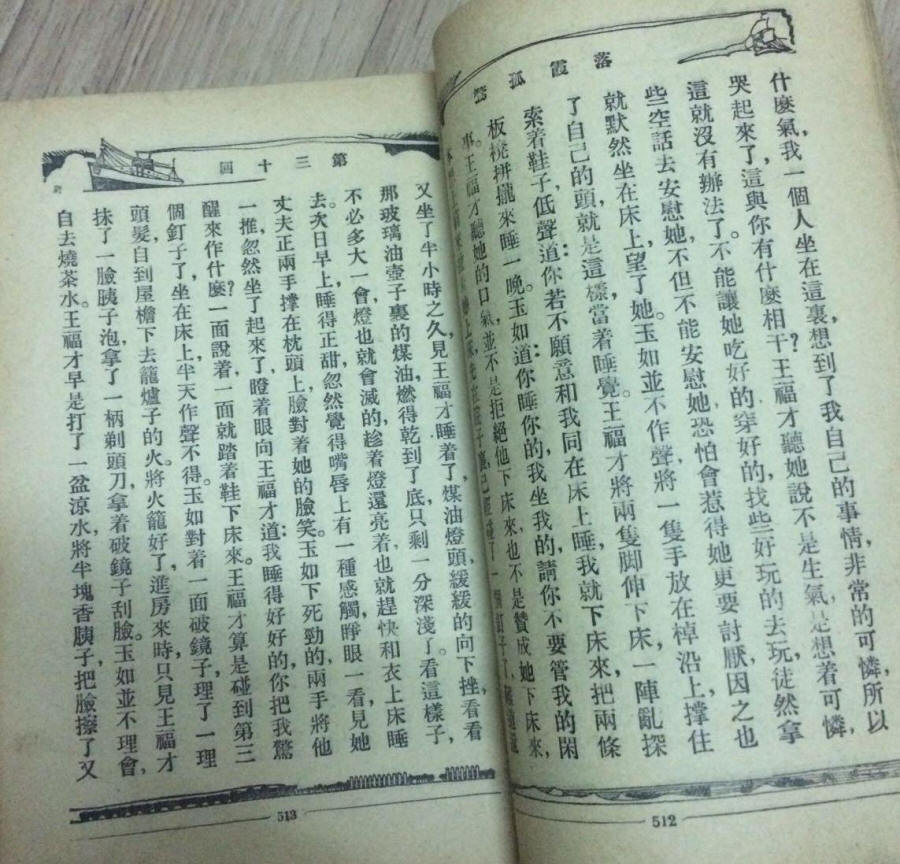 落霞孤鶩
什麼氣，我一個人坐在這裏想到了我自己的事情，非常的可憐，所以
哭起來了，這與你有什麼相干？王福才聽她說不是生氣，是想着可憐，
這就沒有辦法了。不能讓她吃好的穿好的，找些好玩的去玩，徒然拿
些空話去安慰她，不但不能安慰她，恐怕會惹得她更要討厭，因之也
就默然坐在床上，望了她。玉如並不作聲，將一隻手放在棹沿上，撐住
了自己的頭，就是這樣當着睡覺。王福才將兩隻脚伸下床，一陣亂探
索着鞋子，低聲道：你若不願意和我同在床上睡，我就下床來，把兩條
板櫈拼攏來睡一晚。玉如道：你睡你的，我坐我的，請你不要管我的閑
事。王福才聽她的口氣，並不是拒絕他下床來，也不是贊成她下床來，
512
第三十回
又坐了半小時之久，見王福才睡着了，煤油燈頭，緩緩的向下挫，看看
那玻璃油壺子裏的煤油，燃得乾到了底，只剩一分深淺了。看這樣子，
不必多大一會，燈也就會滅的，趁着燈還亮着，也就趕快和衣上床睡
去。次日早上，睡得正甜，忽然覺得嘴唇上有一種感觸，睜眼一看，見她
丈夫正兩手撐在枕頭上，臉對着她的臉笑。玉如下死勁的兩手將他
一推，忽然坐了起來了，瞪着眼向王福才道：我睡得好好的，你把我驚
醒來作什麼？一面說着，一面就踏着鞋下床來。王福才算是碰到第三
個釘子了，坐在床上，半天作聲不得。玉如對着一面破鏡子，理了一理
頭髮，自到屋檐下去籠爐子的火。將火籠好了，進房來時，只見王福才
抹了一臉胰子泡，拿了一柄剃頭刀，拿着破鏡子刮臉。玉如並不理會，
自去燒茶水。王福才早是打了一盆涼水，將半塊香胰子，把臉擦了又
513